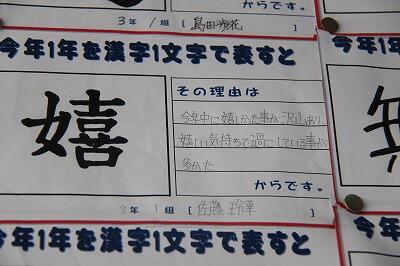 からです。
3年 1組 [島田 花]
今年1年を漢字1文字で表すと
今年1
嬉
その理由は
今年中に嬉しかた事が沢山あり
嬉しい気持ちで過ごしている事が
多かた
からです。
3年 1組 [佐藤 玲華]
今年1年を漢字1文字で表すと
今年1年